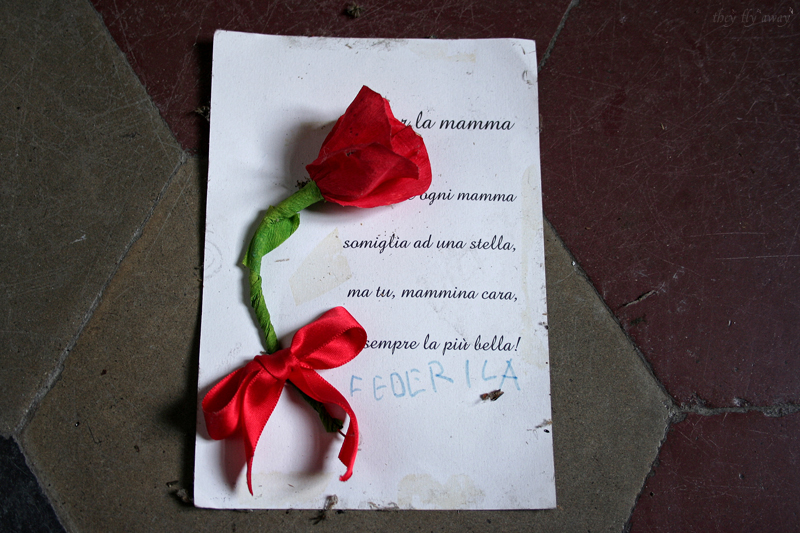 they fly away
la mamma
ogni mamma
somiglia ad una stella,
ma tu, mammina cara,
sempre la più bella!
FEDERICA